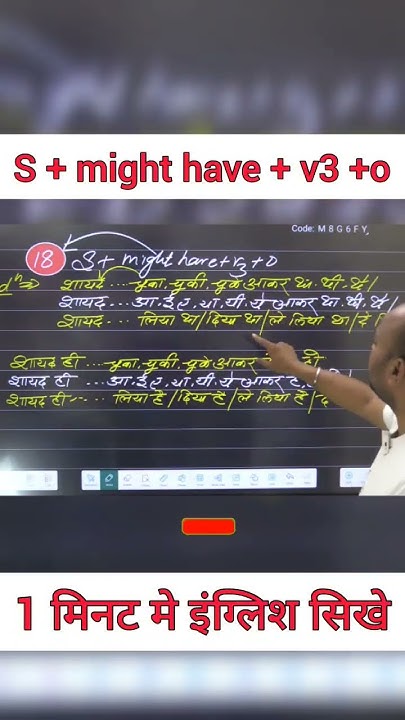 S + might have + v3 +o
Code: M 8 G 6 F Y
18 S + might have + v3 + O
शायद ... चुका, चुकी, चुके आकर था, थी, थे/
शायद ... आ, ई, ए, या, यी, ये आकर था, थी, थे/
शायद ... लिया था/दिया था/ले लिया था/दे
शायद ही ... चुका, चुकी, चुके आकर हो
शायद ही ... आ, ई, ए, या, यी, ये आकर
शायद ही ... लिया है/दिया है/ले लिया है/
1 मिनट मे इंग्लिश सिखे